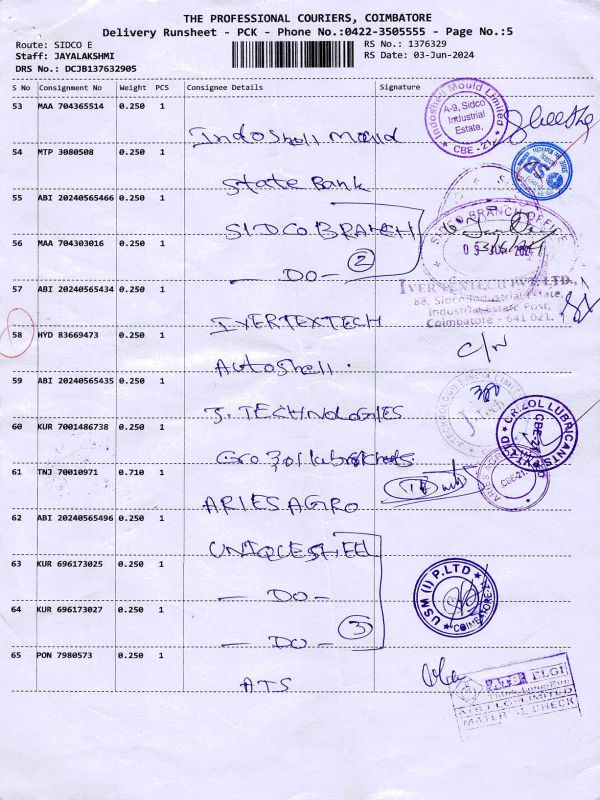 THE PROFESSIONAL COURIERS, COIMBATORE
Delivery Runsheet - PCK - Phone No.:0422-3505555 - Page No.:5
Route: SIDCO E
Staff: JAYALAKSHMI
DRS No.: DCJB137632905
RS No.: 1376329
RS Date: 03-Jun-2024
S No Consignment No Weight PCS Consignee Details Signature
53 MAA 704365514 0.250 1
Indoshell Mould
Indoshell Mould Limited
A-9, Sidco
Industrial
Estate,
CBE - 21
54 MTP 3080508 0.250 1
State Bank
SBI
55 ABI 20240565466 0.250 1
SIDCO BRANCH
SIDCO BRANCH OFFICE
03 JUN 2024
56 MAA 704303016 0.250 1
— DO — 2
57 ABI 20240565434 0.250 1
IVERTEXTECH
IVERTEXTECH PVT. LTD.,
88, Sidco Industrial Estate,
Industrial Estate Post,
Coimbatore - 641 021.
58 HYD 83669473 0.250 1
Autoshell.
C/N
59 ABI 20240565435 0.250 1
J. TECHNOLOGIES
60 KUR 7001486738 0.250 1
CROZOL LUBRICANTS PVT LTD
CBE-21
61 TNJ 70010971 0.710 1
ARIES AGRO
CBE-21
62 ABI 20240565496 0.250 1
UNIQUESHELL
63 KUR 696173025 0.250 1
— DO —
USM (I) P.LTD
COIMBATORE
64 KUR 696173027 0.250 1
— DO — 3
65 PON 7980573 0.250 1
ATS
ELGI
ATS ELGI LIMITED
MATERIAL CHECK